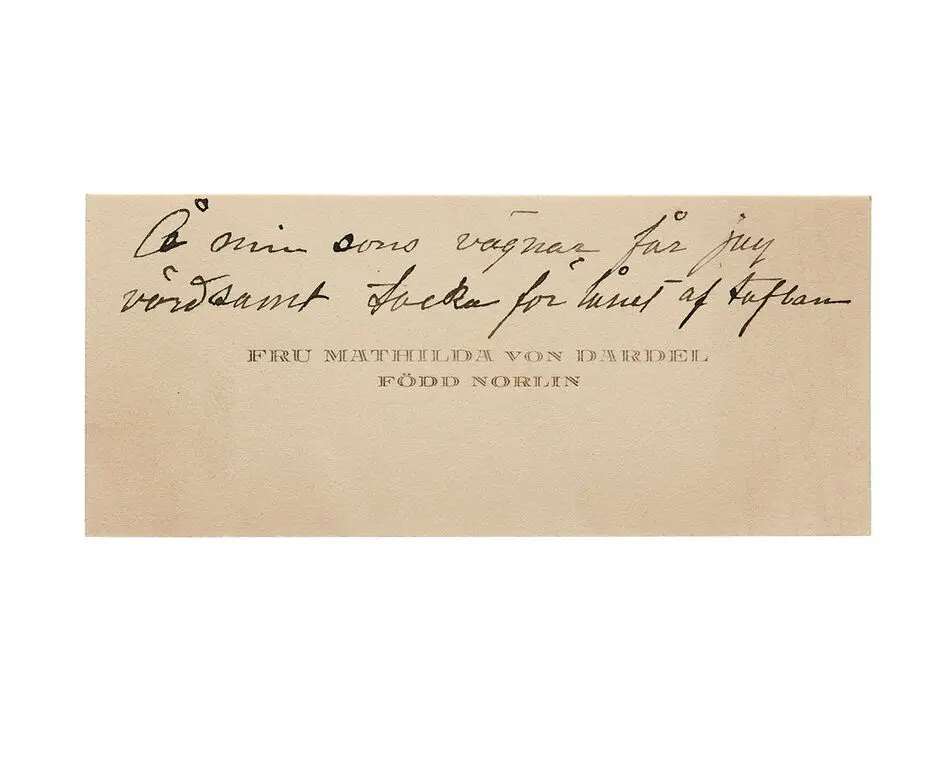 Å min sons vägnar får jag
vördsamt tacka för lånet af taflan
FRU MATHILDA VON DARDEL
FÖDD NORLIN